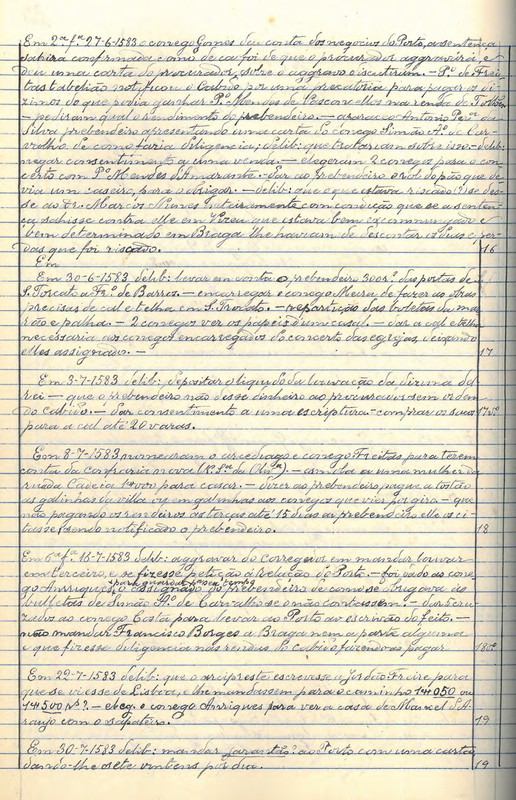 Em 2ª fª 27-6-1583 o conego Gomes deu conta dos negocios do Porto, a sentença
sahira confirmada como de cá foi de que o procurador aggravaria, e
deu uma carta do procurador, sobre o aggravo escreveram. - Pº de Frei-
tas tabelião notificou o Cabido por uma precatoria para pagar os di-
zimos do que podia ganhar P. Mendes de Vasconcellos na renda de
- pediram qual o rendimento do prebendeiro. - a Antonio Perª da
Silva prebendeiro apresentando uma carta do conego Simão Aº de Car-
valho de como faria diligencia; delib: que tratariam sobre isso - delib:
negar consentimento a uma venda. - elegeram 2 conegos para o con-
certo com Pº Mendes d'Amarante. - dar ao prebendeiro o rol do pão que de-
via um caseiro, para o obrigar. - delib: que o que estava riscado
se ao Dr. Marcos Nunes inteiramente com condição que se a senten-
ça sahisse contra elle em que estava bem excommungado e
bem determinado em Braga lhe haviam de descontar os
das que foi riscado. 16
Em
Em 30-6-1583 delib: levar em conta o prebendeiro 300 rs. das portas de
S. Torcato a Frº de Barros. - encarregar o conego Meira de fazer as obras
precisas de cal e telha em S. Torcato. - repartição das boletas da ma-
rão e palha. - 2 conegos ver os papeis d'um casal. - dar a cal e telha
necessaria aos conegos encarregados do concerto das egrejas, deixando
elles assignado. - 17
Em 3-7-1583 delib: depositar o liquido da louvação da dizima del
rei - que o prebendeiro não désse dinheiro ao procurador sem ordem
do cabido. - dar consentimento a uma escriptura - comprar os sacos
para a cal até 20 varas. 17vº
Em 8-7-1583 nomearam o arcediago e conego Freitas para terem
conta da confraria nova (N. Sª da Olivª) - esmola a uma mulher da
rua da Cadeia 1$000 para casar. - dizer ao prebendeiro pague a tostão
as galinhas da villa ou em galinhas aos conegos que vier por giro. - que
não pagando os rendeiros as terças até 15 dias ao prebendeiro elle os ci-
tasse, sendo notificado o prebendeiro. 18
Em 6ª fª 15-7-1583 delib: aggravar do Corregedor em mandar louvar
em terceiro, e se fizesse petição á Relação do Porto. - foi dado ao cone-
go Anrriques, para guardar o assignado do prebendeiro de como se obrigava ás
bulfetas de Simão Aº de Carvalho se o não contassem. - Dar 5 cru-
zados ao conego Costa para levar ao Porto ao escrivão do feito. -
não mandar Francisco Borges a Braga nem a parte alguma
e que fizesse diligencia nas rendas do cabido fazendo-as pagar. 18vº
Em 22-7-1583 delib: que o arcipreste escrevesse a Jordão Freire para
que se viesse de Lisboa, e lhe mandassem para o caminho 14$050 ou
14$500 rs?. - eleg. o conego Anrriques para ver a casa de Manoel d'A-
raujo com o sapateiro. 19
Em 30-7-1583 delib: mandar ao Porto com uma carta
dando-lhe sete vintens por dia. 19